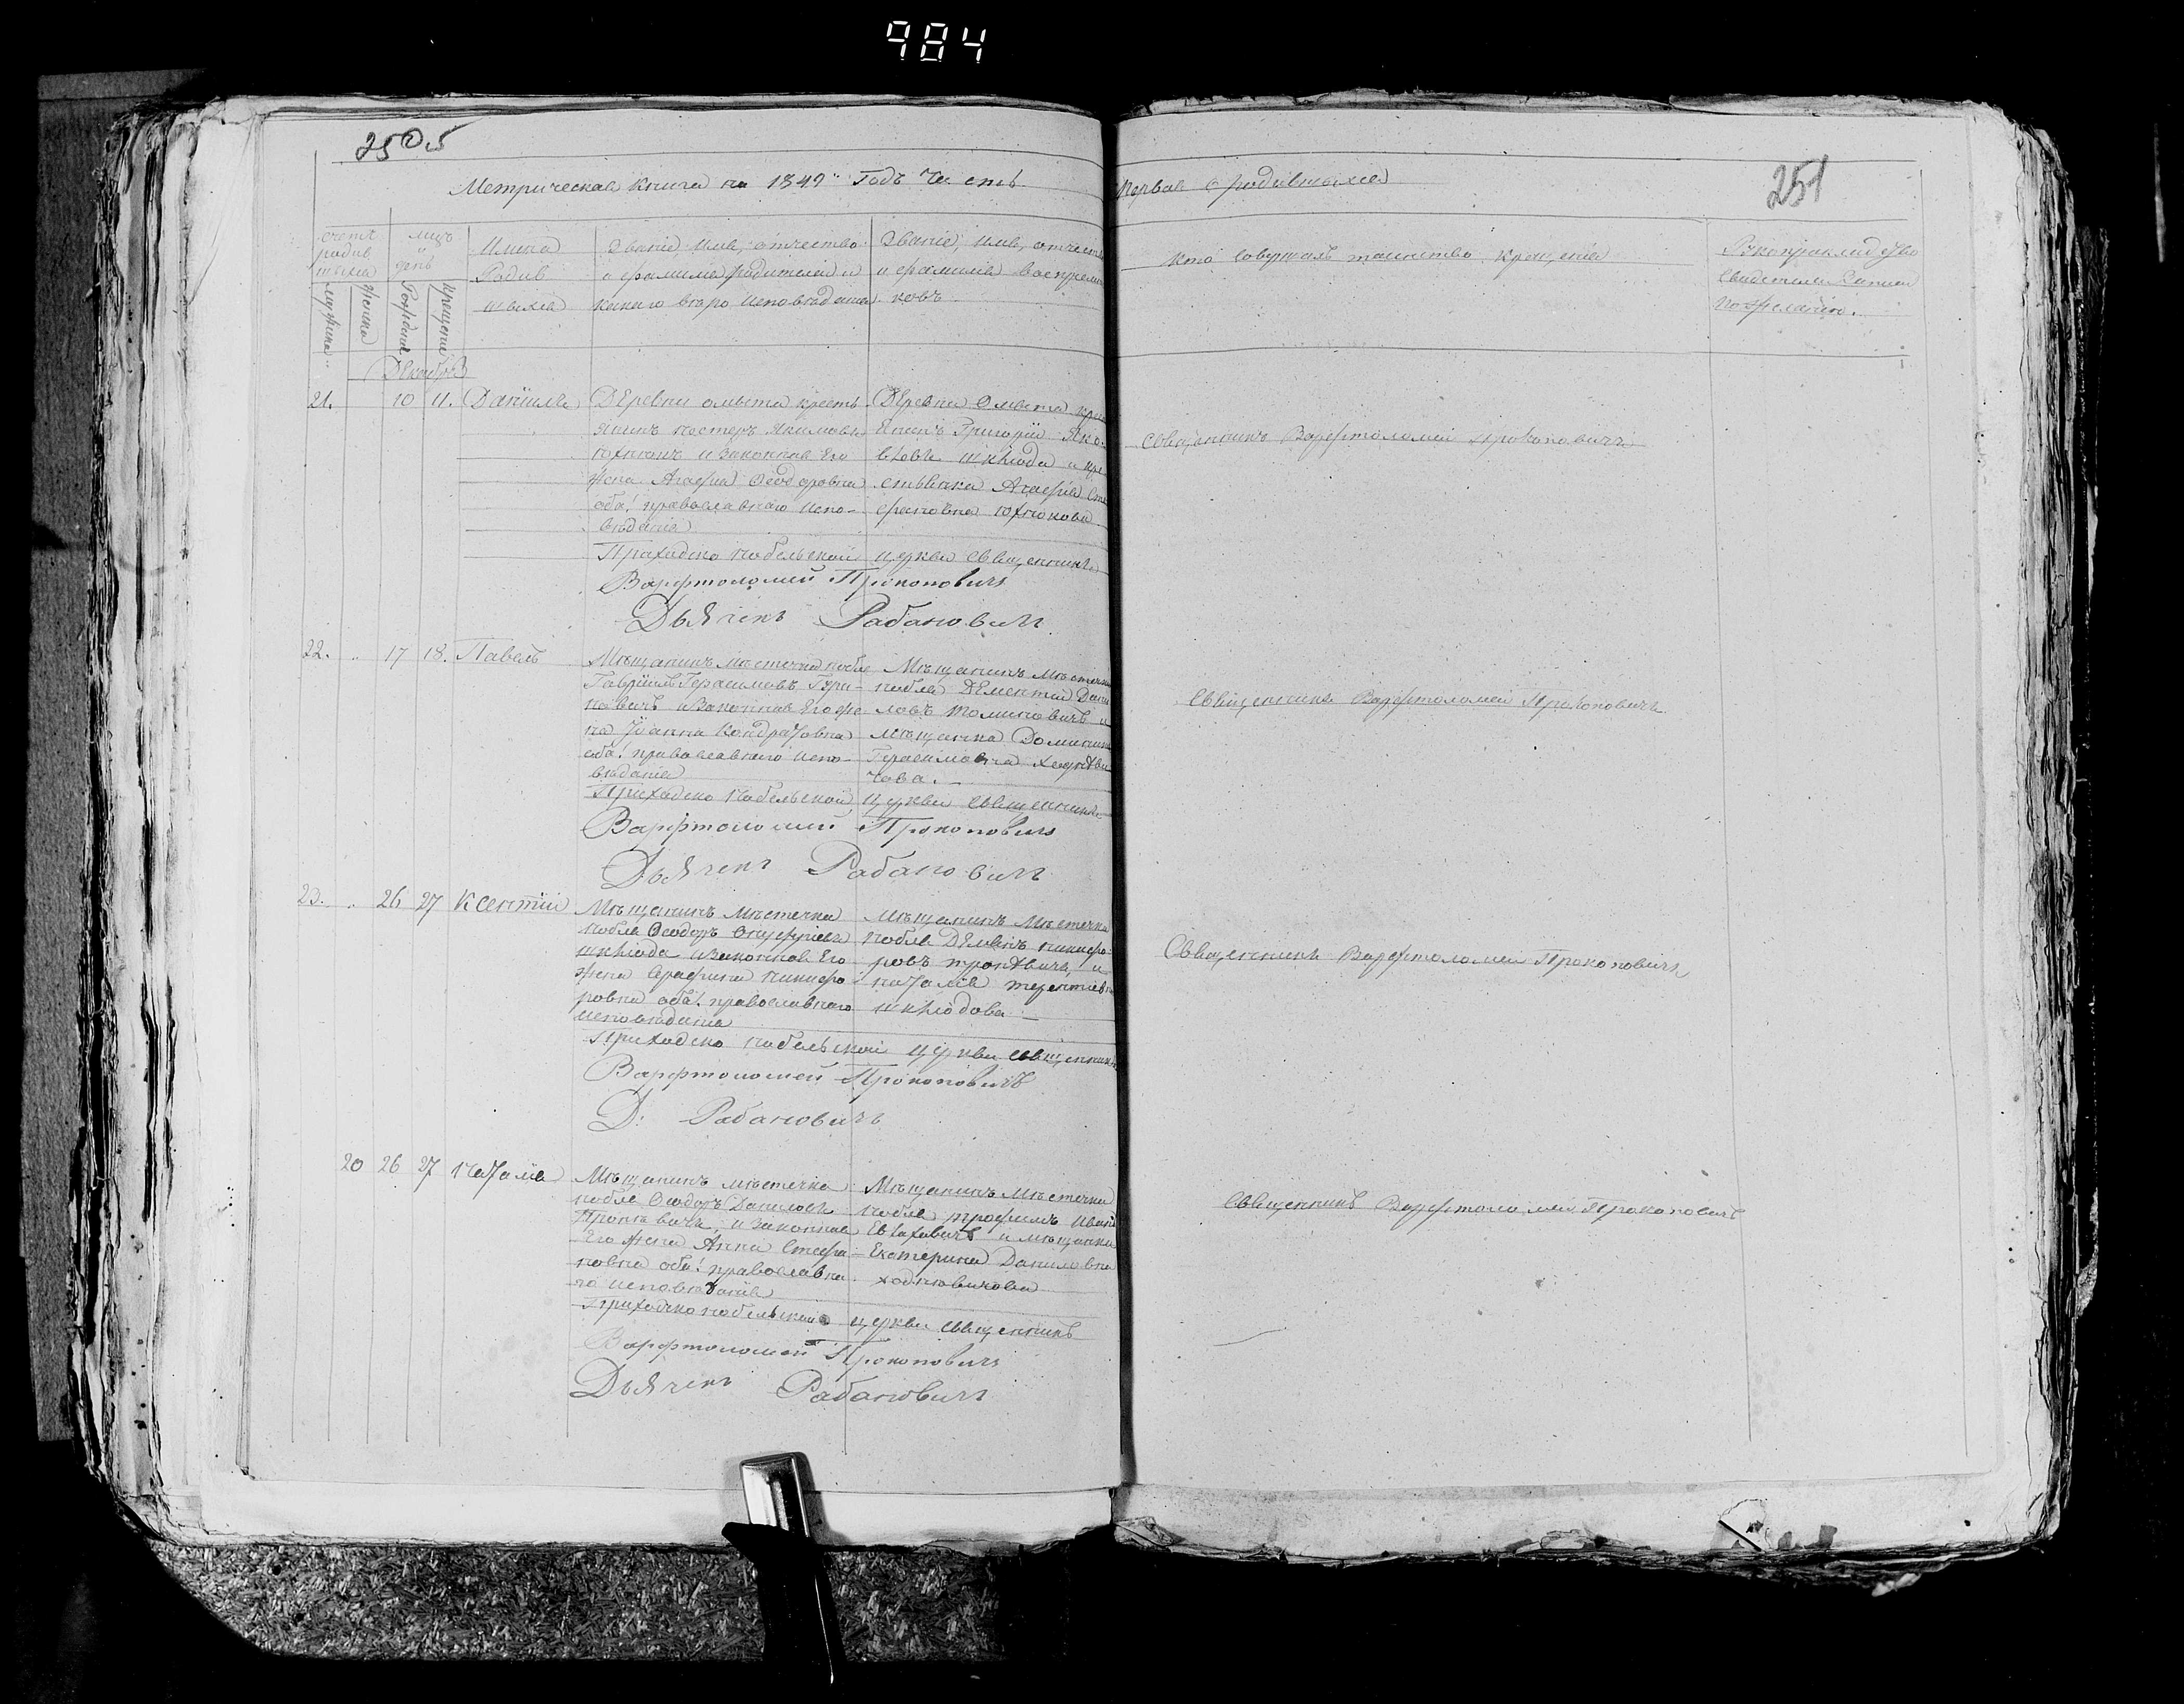 984
250б
251
Метрическая книга на 1849 Годъ Часть первая о родившихся
счетъ родившихся
мужеска
женска
мцъ и день
Рождения
Крещения
Имена
Родив
шихся
Званіе, имя, отчество
и фамилія родителей и
какого веро исповѣданія
Званіе, имя, отчество
и фамилія воспріем
ковъ
Кто совершалъ таинство крещенія
Рукоприкладство
свидетелей записи
по желанію.
Декабрь
21. 10 11. Даніилъ
Деревни омыта кресть
янинъ нестеръ Якимовъ
юхнюкъ и законная Его
жена Агафия Феодоровна
оба: православнаго испо-
вѣданія
Деревни Омыта крес
янинъ Григорій Яко
влевъ шклюда и кре
стьянка Агафія Сте
фановна юхнюкова
Священникъ Варфтоломей Прокоповичъ
Приходско нобельской церкви священникъ
Варфтоломей Прокоповичъ
Дьячекъ Рабановичъ
22. 17 18. Павелъ
Мѣщанинъ мѣстечка нобля
Гавріилъ Герасимовъ
новичъ и законная Его же
на Іоанна Кондратовна
оба: православнаго испо-
вѣданія
Мѣщанинъ мѣстечка
нобля Дементій Дани
ловъ и
мѣщанка
Герасимовна
чова.
Священникъ Варфтоломей Прокоповичъ
Приходско нобельской церкви священникъ
Варфтоломей Прокоповичъ
Дьячекъ Рабановичъ
23. 26 27 Ксентій
Мѣщанинъ мѣстечка
нобля Феодоръ Онуфріевъ
шклюда и законная Его
жена Серафина никифо
ровна оба: православнаго
исповѣданія
Мѣщанинъ мѣстечка
нобля Демянъ никифо
ровъ и
наталія терентіевна
шклюдова
Священникъ Варфтоломей Прокоповичъ
Приходско нобельской церкви священникъ
Варфтоломей Прокоповичъ
Д: Рабановичъ
20 26 27 Наталія
Мѣщанинъ мѣстечка
нобля Феодоръ Даниловъ
и законная
Его жена Анна Стефа-
новна оба: православна
го исповѣданія
Мѣщанинъ мѣстечка
нобля трофимъ Ивано
и мѣщанка
Екатерина Даниловна
ходневичова
Священникъ Варфтоломей Прокоповичъ
Приходско нобельской церкви священникъ
Варфтоломей Прокоповичъ
Дьячекъ Рабановичъ